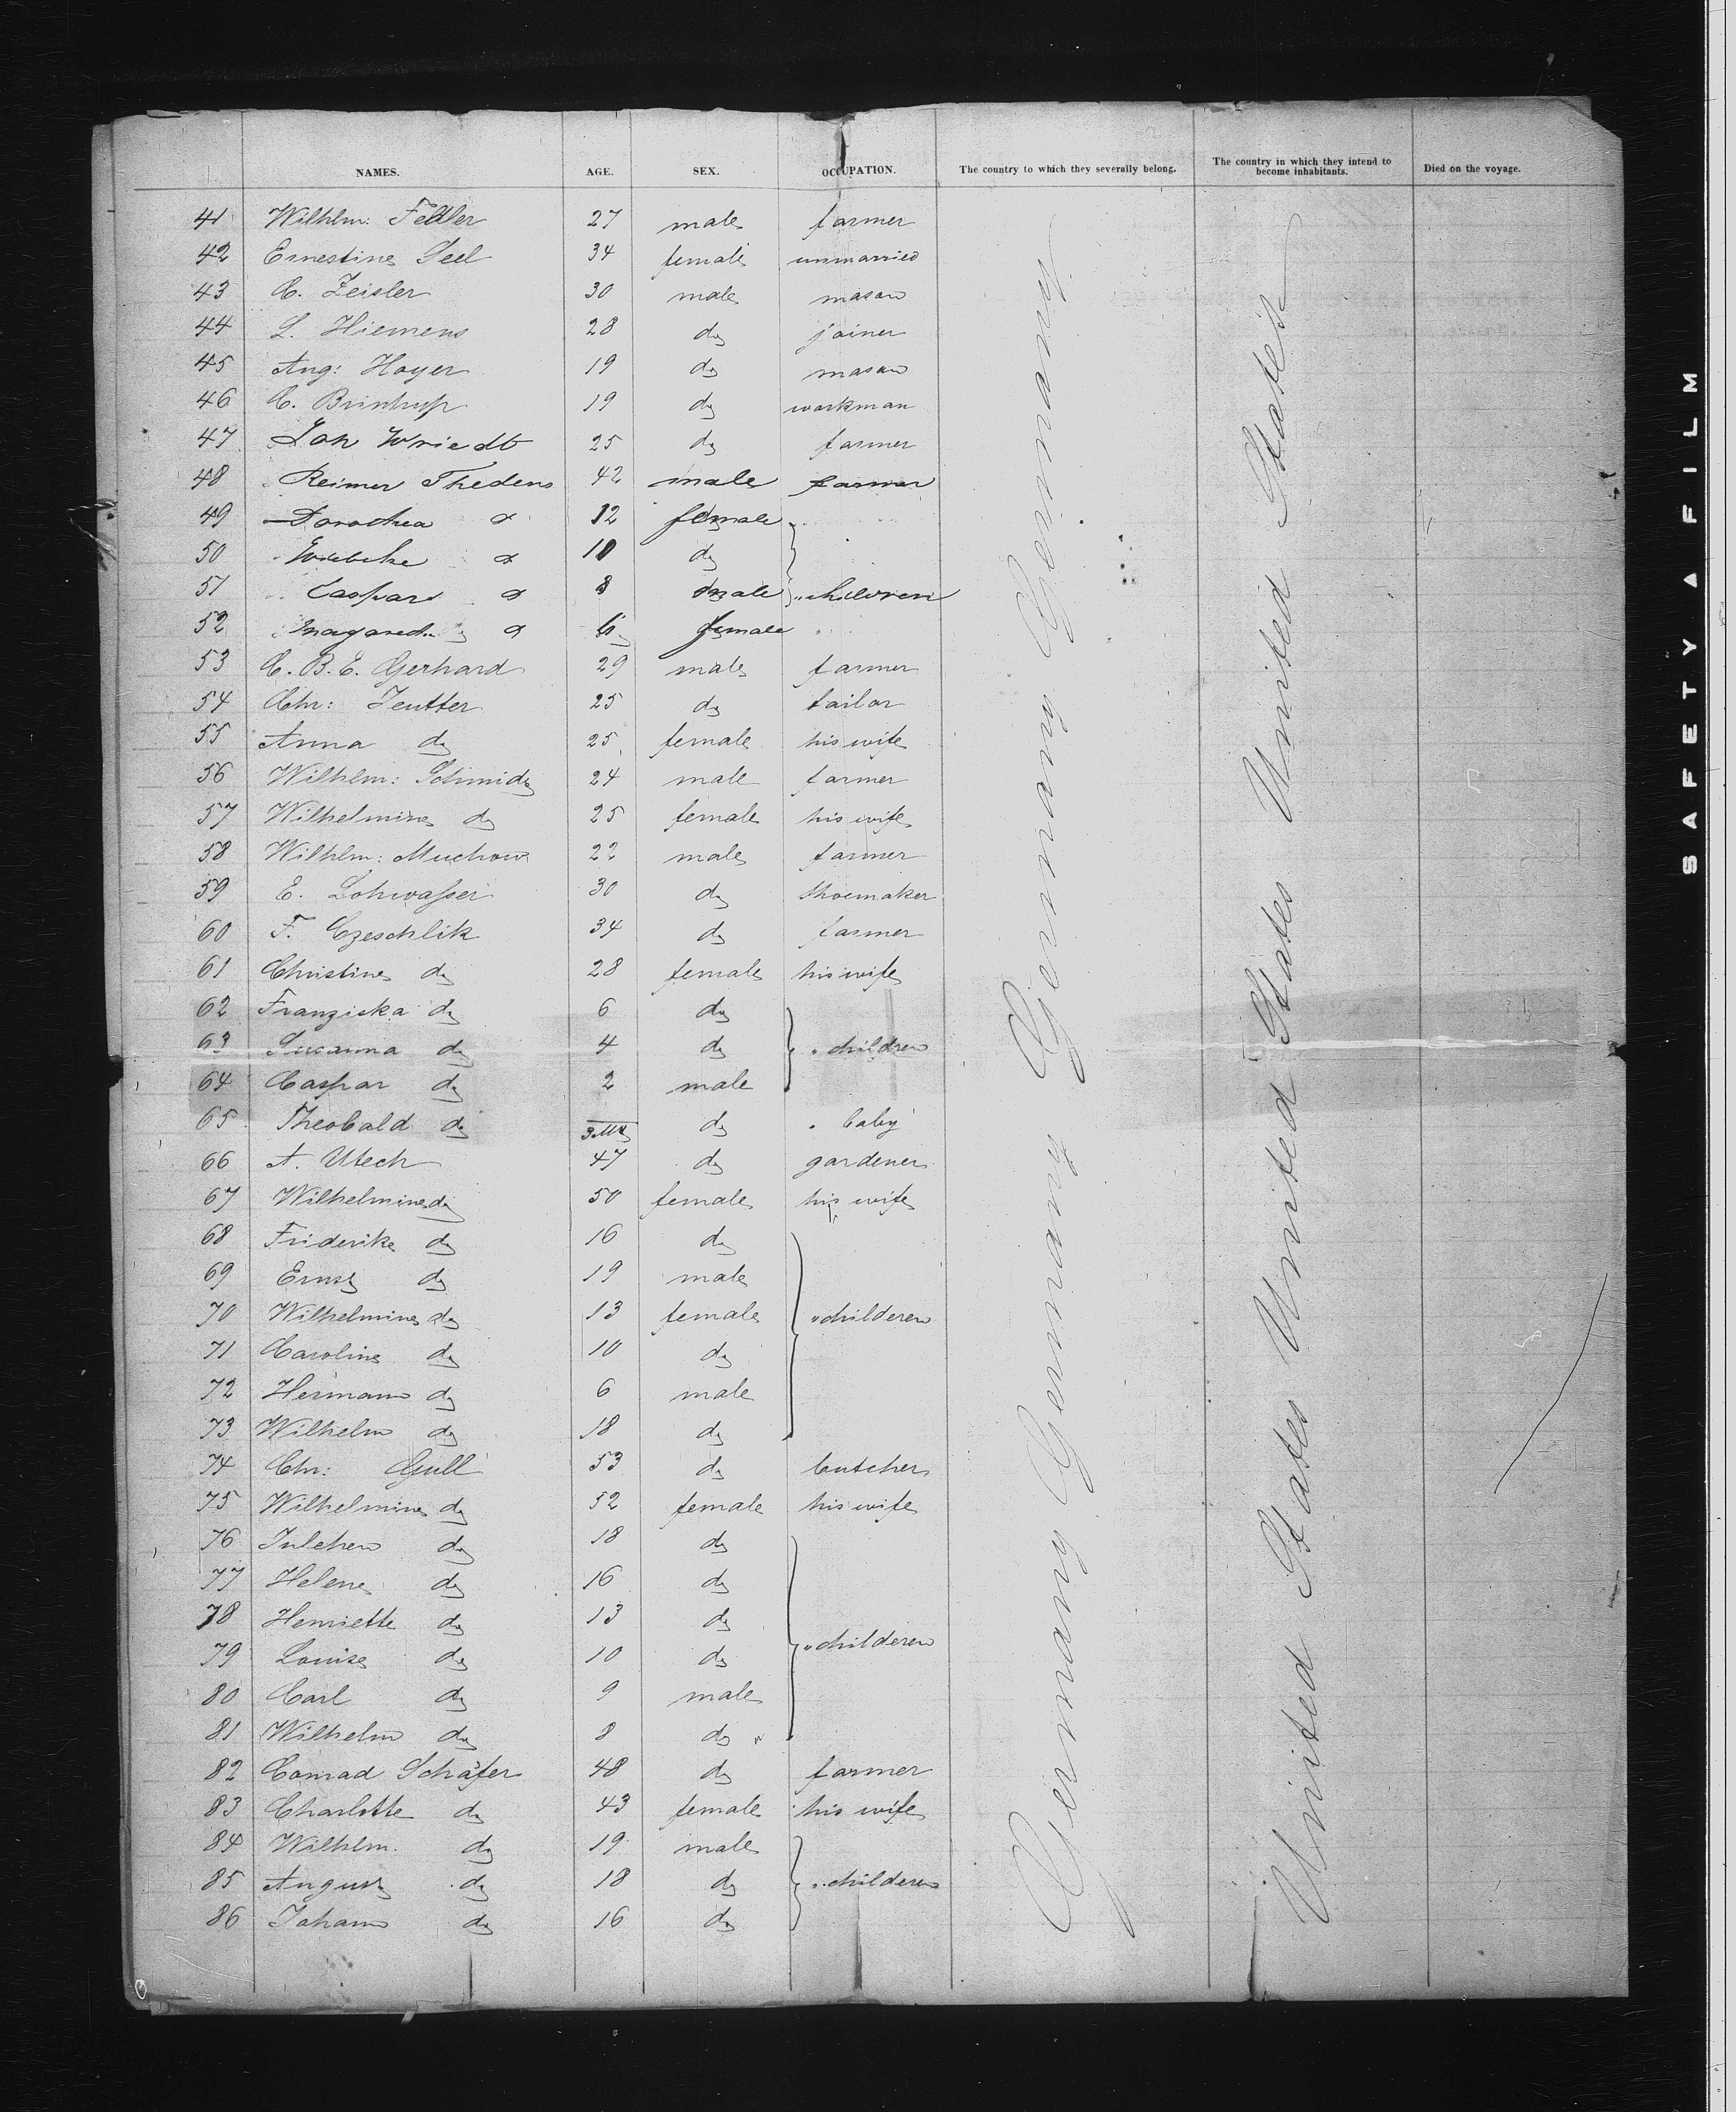 NAMES. AGE. SEX. OCCUPATION. The country to which they severally belong. The country in which they intend to become inhabitants. Died on the voyage.
41 Wilhlm: Fedler 27 male farmer
42 Ernestine Seel 34 female unmarried
43 C. Zeisler 30 male mason
44 L. Hiemens 28 do joiner
45 Aug: Hoyer 19 do mason
46 C. Brintrup 19 do workman
47 Joh Wriedt 25 do farmer
48 Reimer Thedens 42 male farmer
49 Dorothea do 12 female
50 Wiebcke do 10 do
51 Caspar do 8 male children
52 do 6 female
53 C. B. E. Gerhard 29 male farmer
54 Chr: Jeutter 25 do tailor
55 Anna do 25 female his wife
56 Wilhlm: Schmidt 24 male farmer
57 Wilhelmine do 25 female his wife
58 Wilhlm: Muchow 22 male farmer
59 E. Lohwasser 30 do shoemaker
60 F. Czeschlik 34 do farmer
61 Christine do 28 female his wife
62 Franziska do 6 do
63 Susanna do 4 do children
64 Caspar do 2 male
65 Theobald do 3 Mt do baby
66 A. Utech 47 do gardener
67 Wilhelmine do 50 female his wife
68 Friderike do 16 do
69 Ernst do 19 male
70 Wilhelmine do 13 female childeren
71 Caroline do 10 do
72 Hermann do 6 male
73 Wilhelm do 18 do
74 Chr: Gull 53 do butcher
75 Wilhelmine do 52 female his wife
76 Julchen do 18 do
77 Helene do 16 do
78 Henriette do 13 do
79 Louise do 10 do childeren
80 Carl do 9 male
81 Wilhelm do 8 do
82 Conrad Schäfer 48 do farmer
83 Charlotte do 43 female his wife
84 Wilhlm. do 19 male
85 August do 18 do childeren
86 Johann do 16 do
Germany Germany Germany Germany Germany
United States United States United States United States
SAFETY A FILM